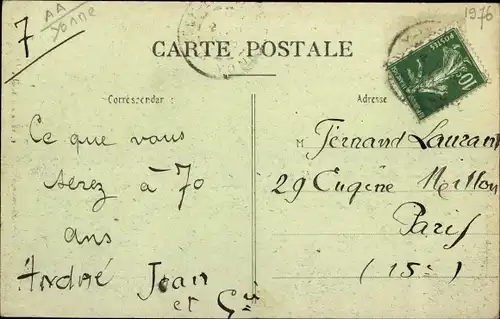 7
AA
Yonne
1976
CARTE POSTALE
POSTES
10c
Correspondance
Adresse
Ce que vous
serez à 70
ans
André Jean
et Gui
M Fernand Laurant
29 Eugène Millon
Paris
(15e)